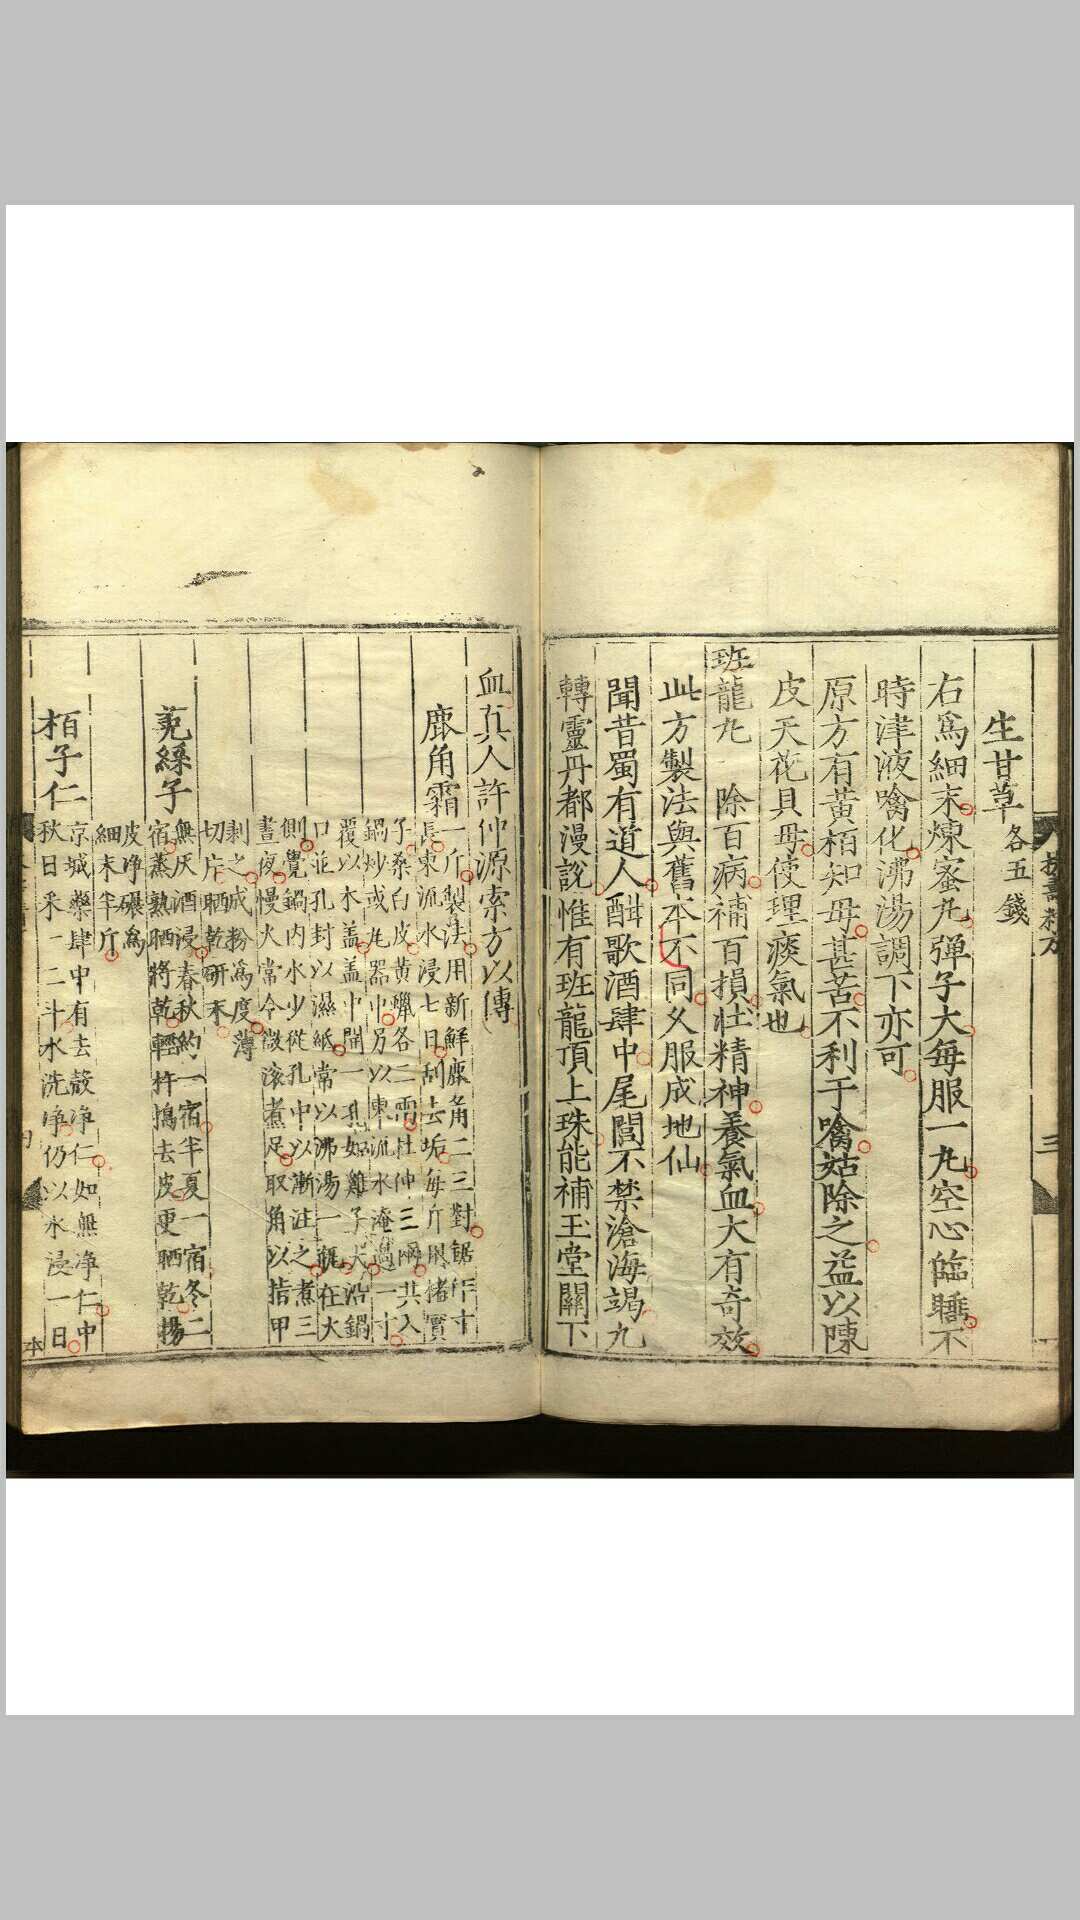 生甘草各五錢
右爲細末煉蜜丸彈子大每服一丸空心臨睡不
時津液噙化沸湯調下亦可
原方有黃栢知母甚苦不利于噙姑除之益以陳
皮天花貝母使理痰氣也
班龍丸 除百病補百損壯精神養氣血大有奇效
此方製法與舊本不同久服成地仙
聞昔蜀有道人酣歌酒肆中尾閭不禁滄海竭九
轉靈丹都漫說惟有班龍頂上珠能補玉堂關下
三
血眞人許仲源索方以傳
鹿角霜一斤製法用新鮮鹿角二三對鋸作寸
長東流水浸七日刮去垢每斤用楮實
子桑白皮黃蠟各二兩杜仲三兩共入
鍋炒或瓦器中另以東流水淹過一寸
覆以木蓋蓋中開一孔如雞子大沿鍋
口並孔封以濕紙常以沸湯一銚在大
側覺鍋內水少從孔中以漸注之煮三
晝夜慢火常令微滚煮足取角以指甲
剥之成粉爲度薄
切片晒乾研末
莵絲子
無灰酒浸春秋約一宿半夏一宿冬二
宿蒸熟晒將乾輕杵搗去皮更晒乾揚
皮净碾爲
細末半斤
栢子仁
京城藥肆中有去殻净仁如無净仁中
秋日采一二斗水洗净仍以水浸一日
本